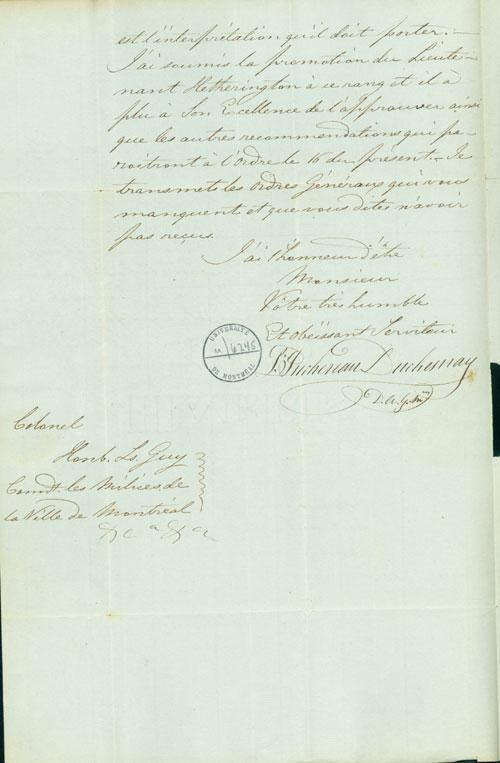 est l'interprétation qu'il doit porter.—
J'ai soumis la promotion du Lieute-
nant Hetherington à ce rang et il a
plu à Son Excellence de l'approuver ainsi
que les autres recommendations qui pa-
roitront à l'Ordre le 16 du présent.— Je
transmets les Ordres Généraux qui vous
manquent et que vous dites n'avoir
pas reçus.
J'ai l'honneur d'être
Monsieur
Vôtre très humble
Et obéissant Serviteur
Juchereau Duchesnay
D. A. G. M.
UNIVERSITÉ
DE MONTRÉAL
Colonel
Honb. Ls. Guy
Comdt. les Milices de
la Ville de Montréal
&c a &c a